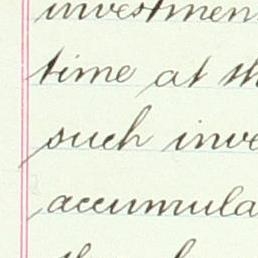 investmen
time at th
such inve
accumula